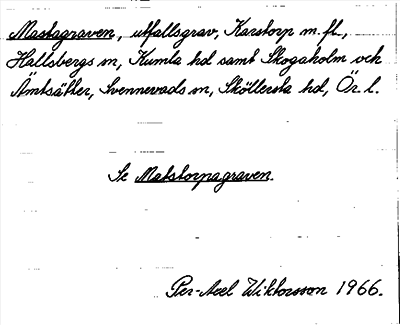 Mastagraven, utfallsgrav, Karstorp m.fl.,
Hallsbergs sn, Kumla hd samt Skogaholm och
Ämtsätter, Svennevads sn, Sköllersta hd, Ör. l.
Se Matstorpagraven.
Per-Axel Wiktorsson 1966.